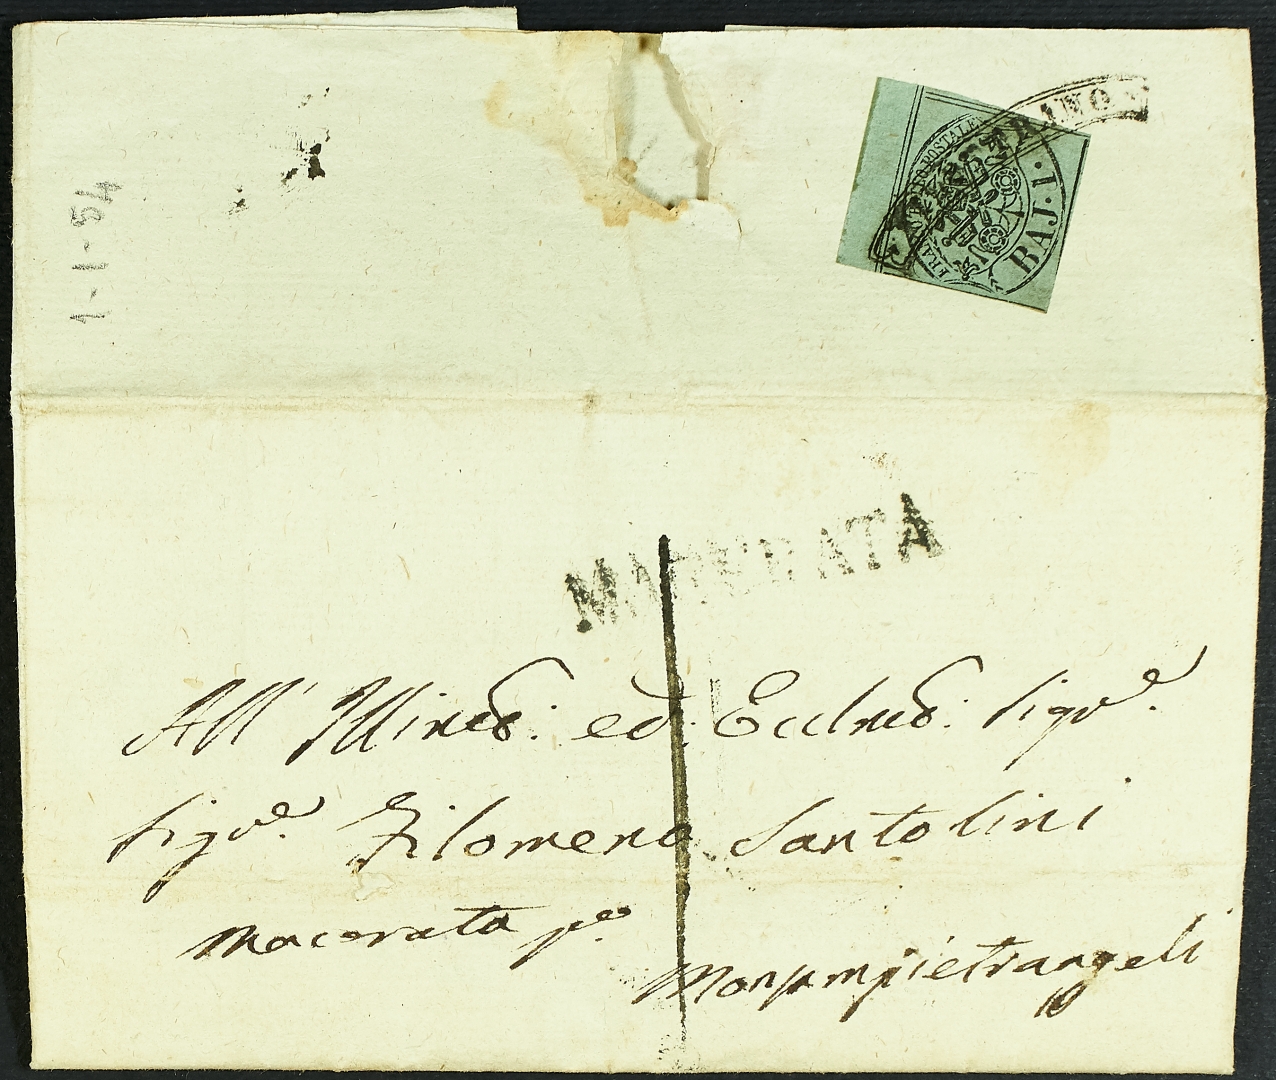 1-1-54
FRANCO BOLLO POSTALE
BAJ. 1.
MACERATA
All' Illmo: ed: Ecclmo: Sigre.
Sigre. Filomeno Santolini
Macerata pe.
Monpampietrangeli